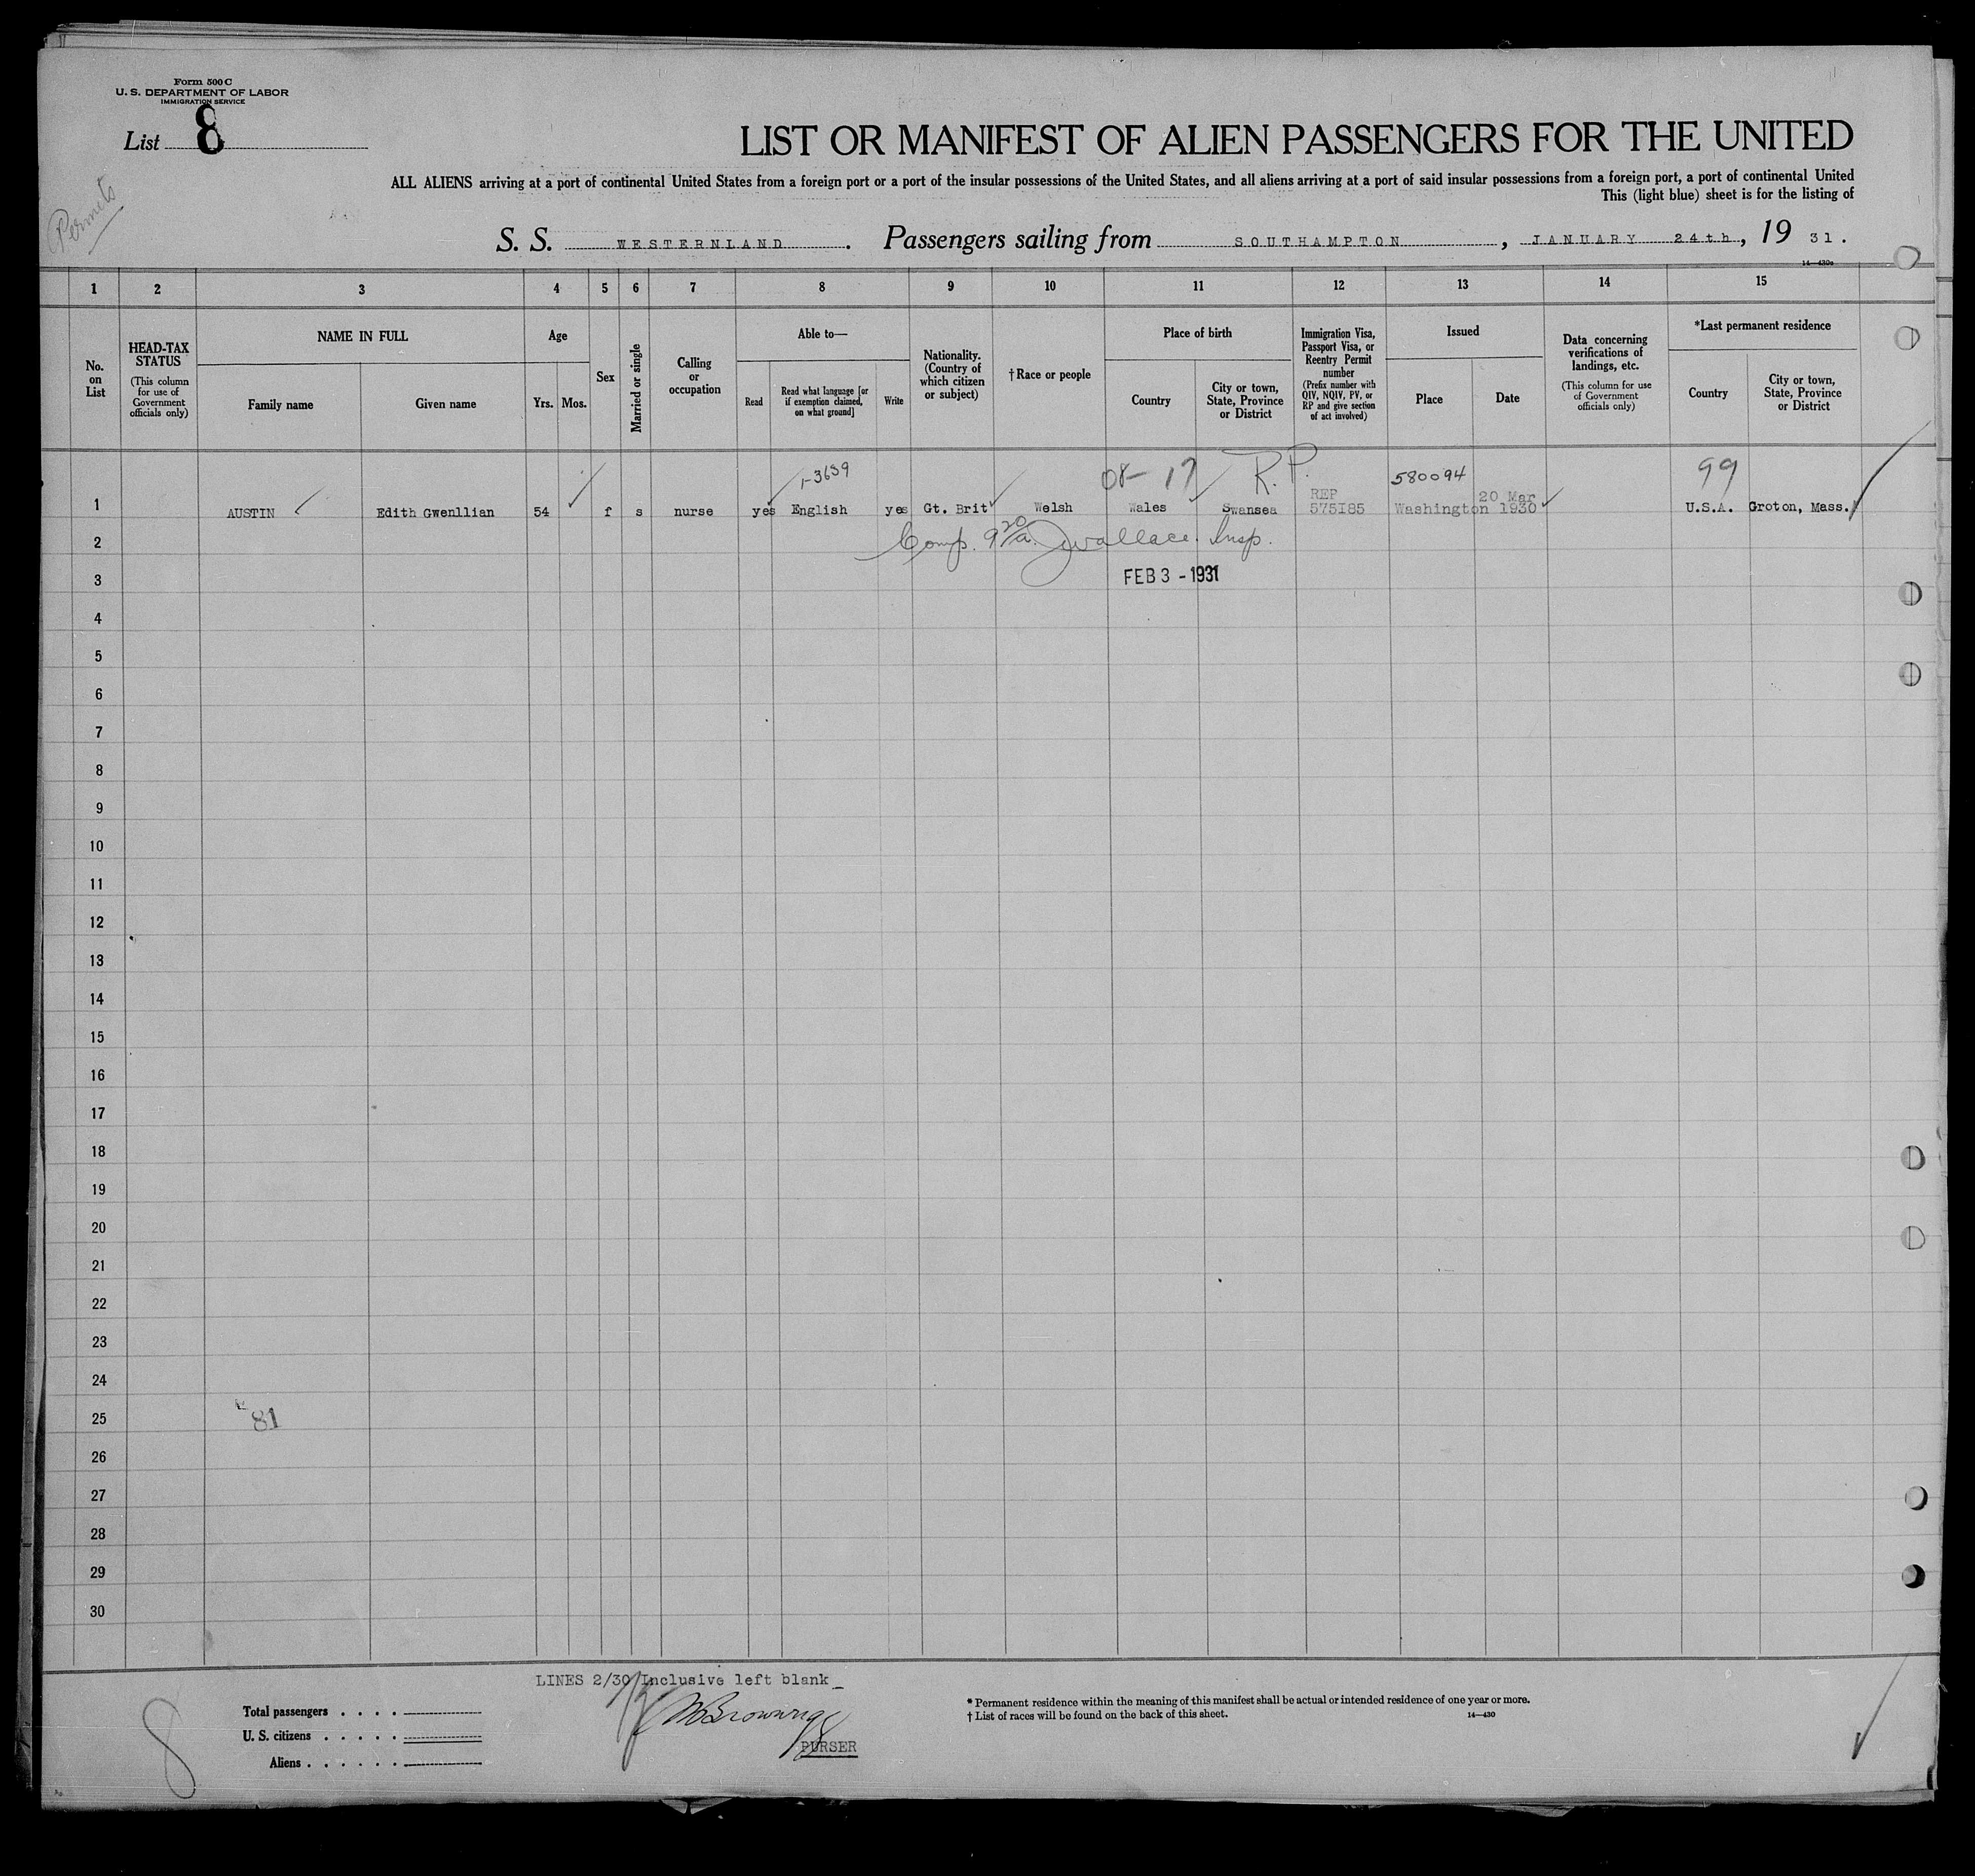 Form 500 C
U. S. DEPARTMENT OF LABOR
IMMIGRATION SERVICE
List 8
Permits
LIST OR MANIFEST OF ALIEN PASSENGERS FOR THE UNITED
ALL ALIENS arriving at a port of continental United States from a foreign port or a port of the insular possessions of the United States, and all aliens arriving at a port of said insular possessions from a foreign port, a port of continental United
This (light blue) sheet is for the listing of
S. S. WESTERNLAND. Passengers sailing from SOUTHAMPTON, JANUARY 24th, 19 31.
14—430c
1 2 3 4 5 6 7 8 9 10 11 12 13 14 15
No. on List
HEAD-TAX STATUS
(This column for use of Government officials only)
NAME IN FULL
Family name
Given name
Age
Yrs.
Mos.
Sex
Married or single
Calling or occupation
Able to—
Read
Read what language [or if exemption claimed, on what ground]
Write
Nationality. (Country of which citizen or subject)
†Race or people
Place of birth
Country
City or town, State, Province or District
Immigration Visa, Passport Visa, or Reentry Permit number
(Prefix number with QIV, NQIV, PV, or RP and give section of act involved)
Issued
Place
Date
Data concerning verifications of landings, etc.
(This column for use of Government officials only)
*Last permanent residence
Country
City or town, State, Province or District
1-3639 08- 17 R.P. 580094 99
REP 20 Mar
1 AUSTIN Edith Gwenllian 54 f s nurse yes English yes Gt. Brit Welsh Wales Swansea 575185 Washington 1930 U.S.A. Groton, Mass.
2 Comp. 9 20/a. Jwallace. Insp.
3 FEB 3 - 1931
4
5
6
7
8
9
10
11
12
13
14
15
16
17
18
19
20
21
22
23
24
25 81
26
27
28
29
30
LINES 2/30 Inclusive left blank
8
Total passengers
U. S. citizens
Aliens
PURSER
* Permanent residence within the meaning of this manifest shall be actual or intended residence of one year or more.
† List of races will be found on the back of this sheet.
14—430